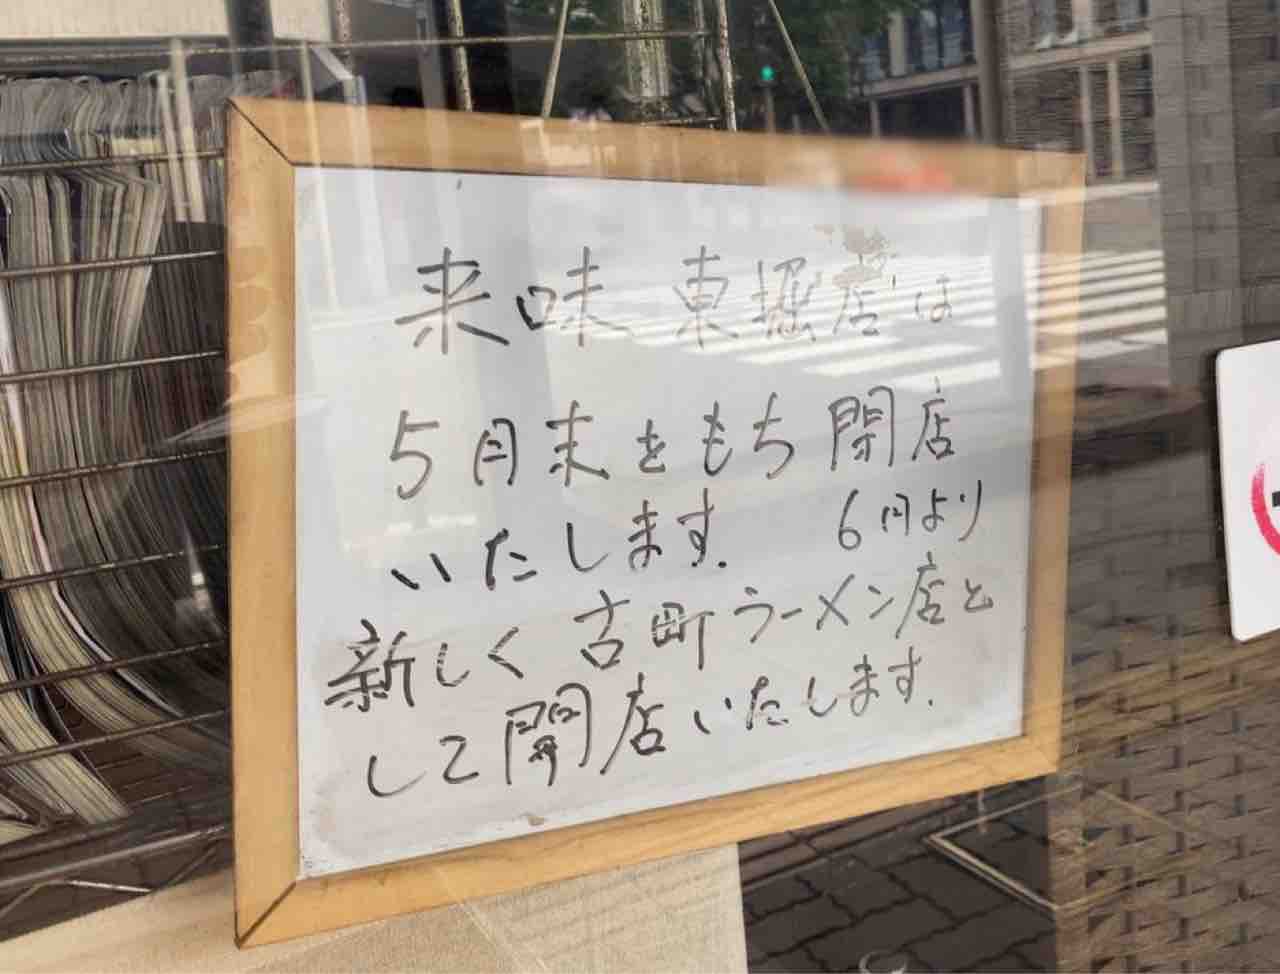 来味 東堀店は
5月末をもち閉店
いたします. 6月より
新しく 古町ラーメン店と
して開店いたします.